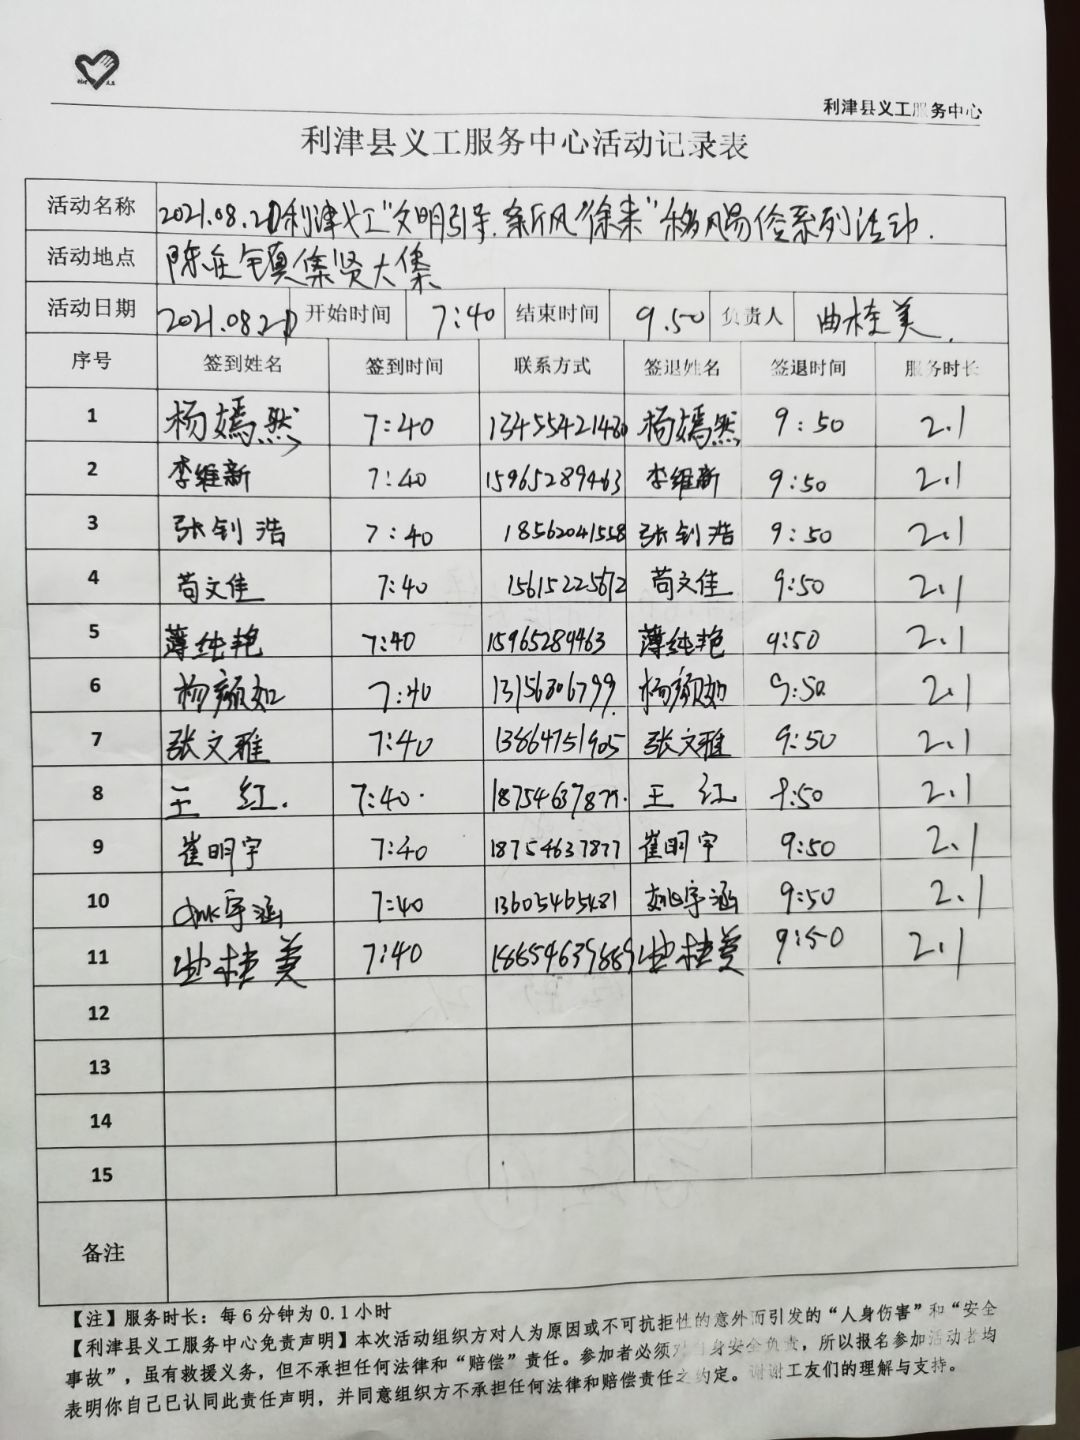 利津县义工服务中心
利津县义工服务中心活动记录表
活动名称 2021.08.21利津义工"文明引导,新风"徐来"移风易俗系列活动.
活动地点 陈庄镇集贤大集
活动日期 2021.08.21 开始时间 7:40 结束时间 9.50 负责人 曲桂美.
序号 签到姓名 签到时间 联系方式 签退姓名 签退时间 服务时长
1 杨嫣然 7:40 杨嫣然 9:50 2.1
2 李维新 7:40 15965289463 李维新 9:50 2.1
3 张钊浩 7:40 18562041558 张钊浩 9:50 2.1
4 苟文佳 7:40 15615225672 苟文佳 9:50 2.1
5 薄纯艳 7:40 15965289463 薄纯艳 9:50 2.1
6 杨颜如 7:40 13156306799 杨颜如 9:50 2.1
7 张文雅 7:40 13864751905 张文雅 9:50 2.1
8 王 红. 7:40. 王 红 9:50 2.1
9 崔明宇 7:40 18754637877 崔明宇 9:50 2.1
10 宇涵 7:40 13605465481 宇涵 9:50 2.1
11 曲桂美 7:40 曲桂美 9:50 2.1
12
13
14
15
备注
【注】服务时长：每6分钟为0.1小时
【利津县义工服务中心免责声明】本次活动组织方对人为原因或不可抗拒性的意外而引发的“人身伤害”和“安全
事故”，虽有救援义务，但不承担任何法律和“赔偿”责任。参加者必须对自身安全负责，所以报名参加活动者均
表明你自己已认同此责任声明，并同意组织方不承担任何法律和赔偿责任之约定。谢谢工友们的理解与支持。